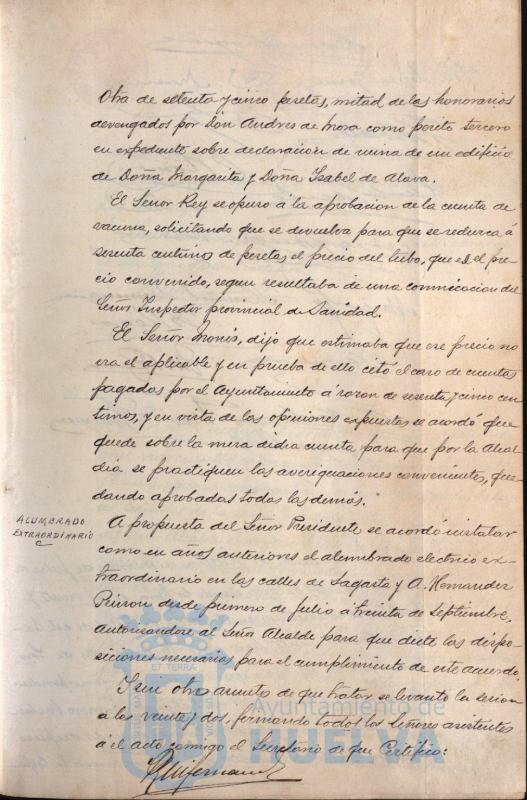 Otra de setenta y cinco pesetas, mitad de los honorarios
devengados por Don Andres de Mora como perito tercero
en expediente sobre declaracion de ruina de un edificio
de Doña Margarita y Doña Isabel de Alava.
El Señor Rey se opuso á la aprobacion de la cuenta de
vacuna, solicitando que se devuelva para que se reduzca á
sesenta centimos de pesetas el precio del tubo, que es el pre-
cio convenido, segun resultaba de una comunicacion del
Señor Inspector provincial de Sanidad.
El Señor Monís, dijo que estimaba que ese precio no
era el aplicable y en prueba de ello citó el caso de cuentas
pagadas por el Ayuntamiento á razon de sesenta y cinco cen-
timos, y en vista de las opiniones expuestas se acordó que
quede sobre la mesa dicha cuenta para que por la Alcal-
dia se practiquen las averiguaciones convenientes, que-
dando aprobadas todas las demás.
ALUMBRADO
EXTRAORDINARIO
A propuesta del Señor Presidente se acordó instalar
como en años anteriores el alumbrado electrico ex-
traordinario en las calles de Sagasta y A. Hernandez
Pinzon desde primero de Julio á treinta de Septiembre,
autorizandose al Señor Alcalde para que dicte las dispo-
siciones necesarias para el cumplimiento de este acuerdo.
I sin otros asuntos de que tratar se levantó la sesion
a las veinte y dos, firmando todos los Señores asistentes
á el acto, conmigo el Secretario de que Certifico:
Ayuntamiento de
HUELVA